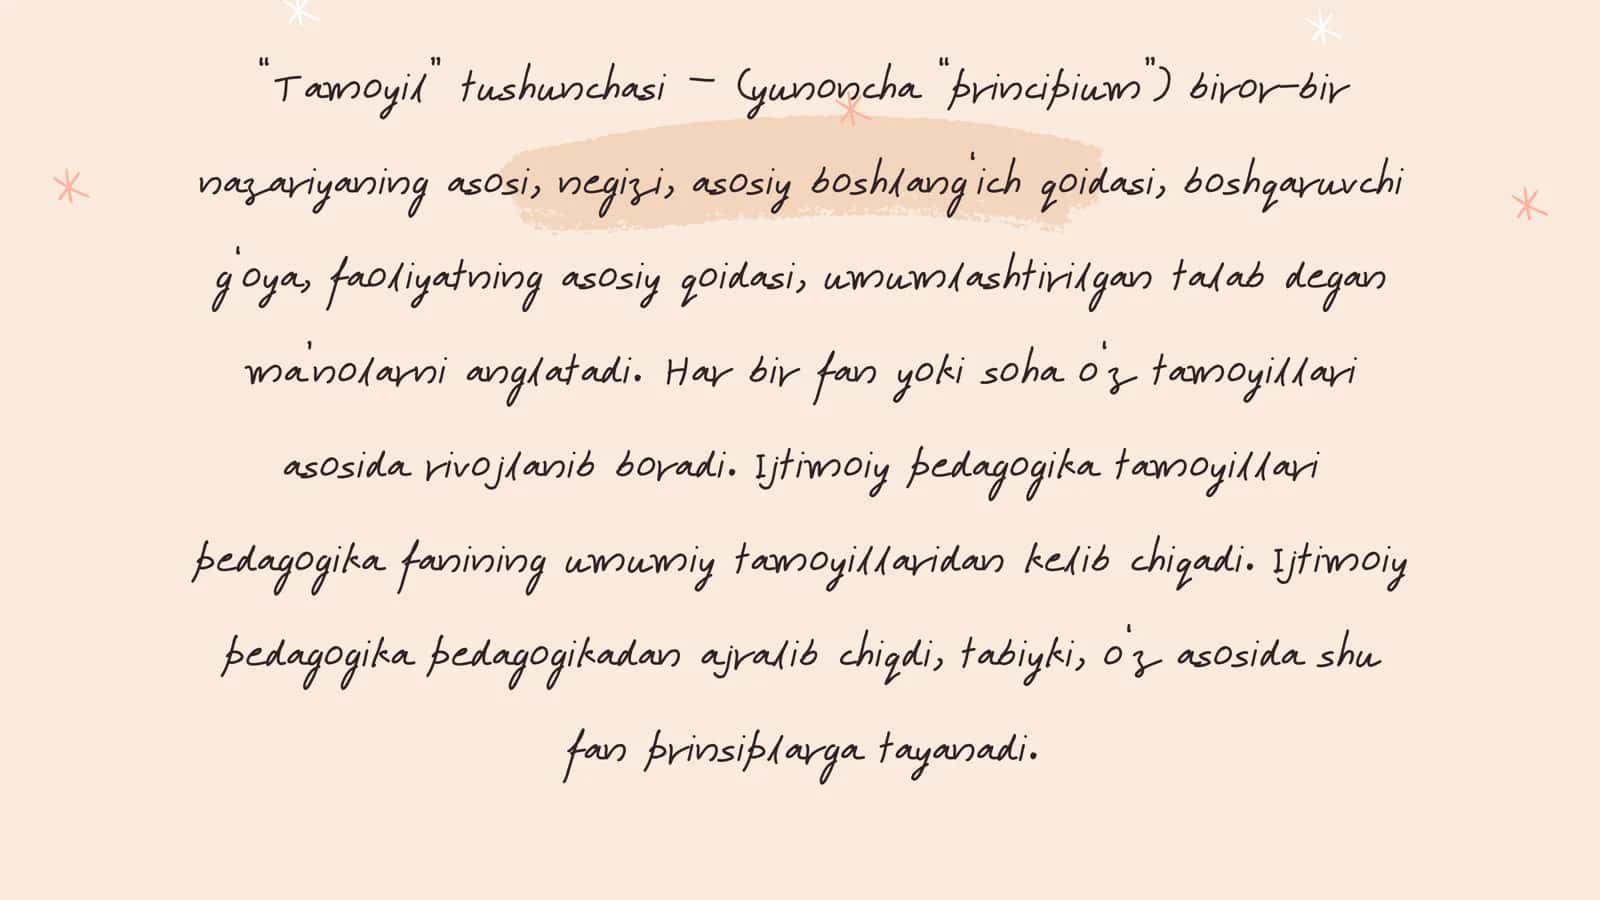 “Tamoyil” tushunchasi – (yunoncha “principium”) biror-bir
nazariyaning asosi, negizi, asosiy boshlang‘ich qoidasi, boshqaruvchi
g‘oya, faoliyatning asosiy qoidasi, umumlashtirilgan talab degan
ma’nolarni anglatadi. Har bir fan yoki soha o‘z tamoyillari
asosida rivojlanib boradi. Ijtimoiy pedagogika tamoyillari
pedagogika fanining umumiy tamoyillaridan kelib chiqadi. Ijtimoiy
pedagogika pedagogikadan ajralib chiqdi, tabiyki, o‘z asosida shu
fan prinsiplarga tayanadi.